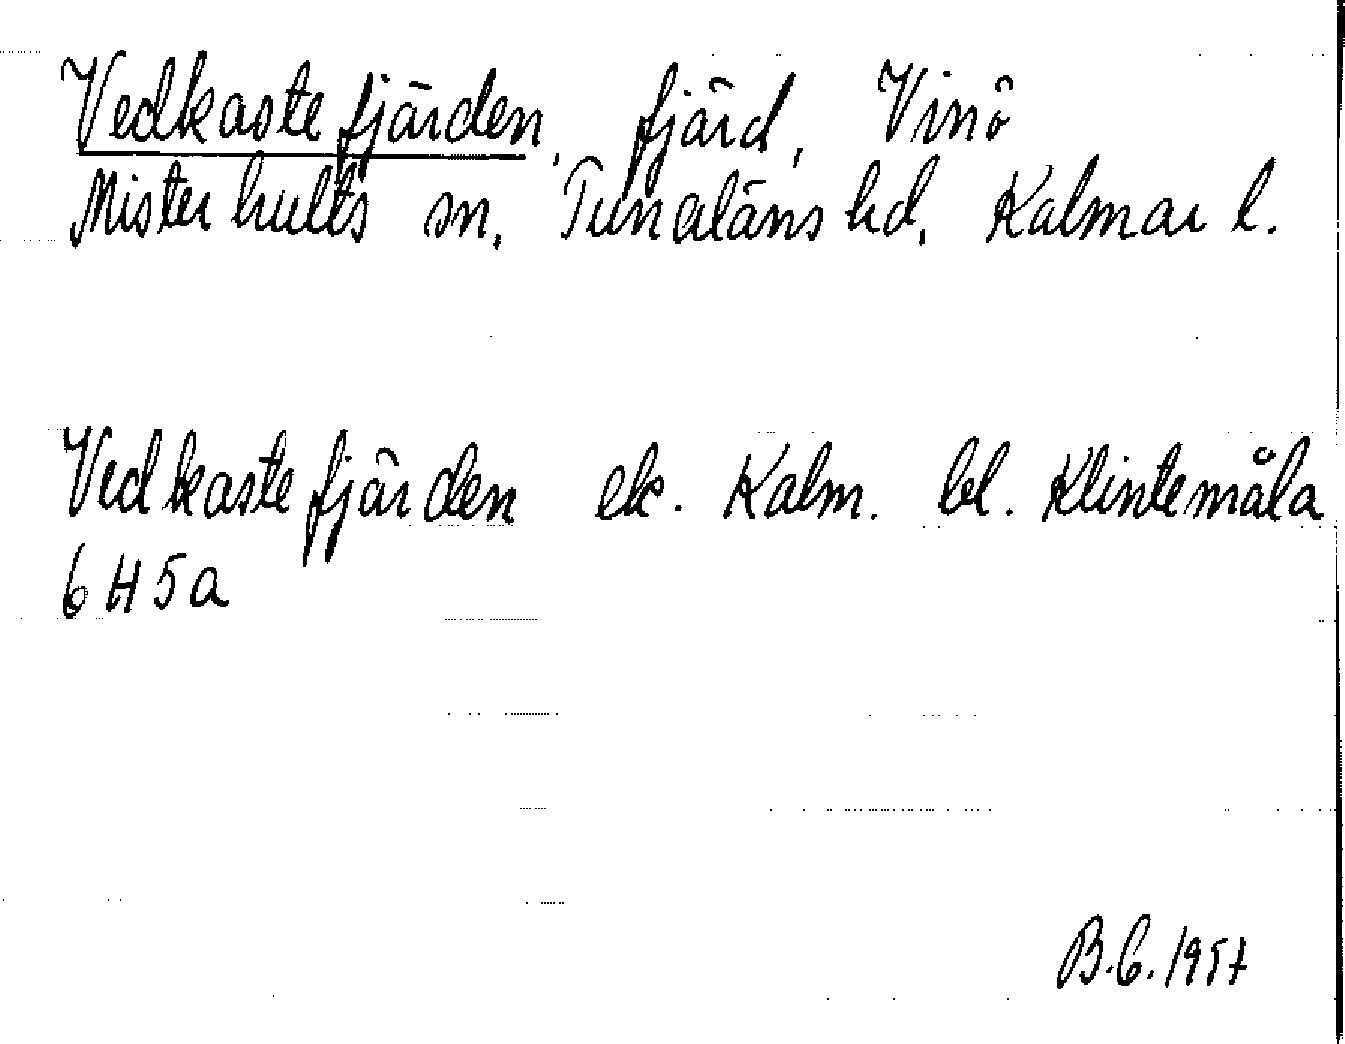 Vedkastefjärden, fjärd, Vinö
Misterhults sn, Tunaläns hd, Kalmar l.
Vedkastefjärden ek. Kalm. bl. Klintemåla
6H5a
B.G. 1957